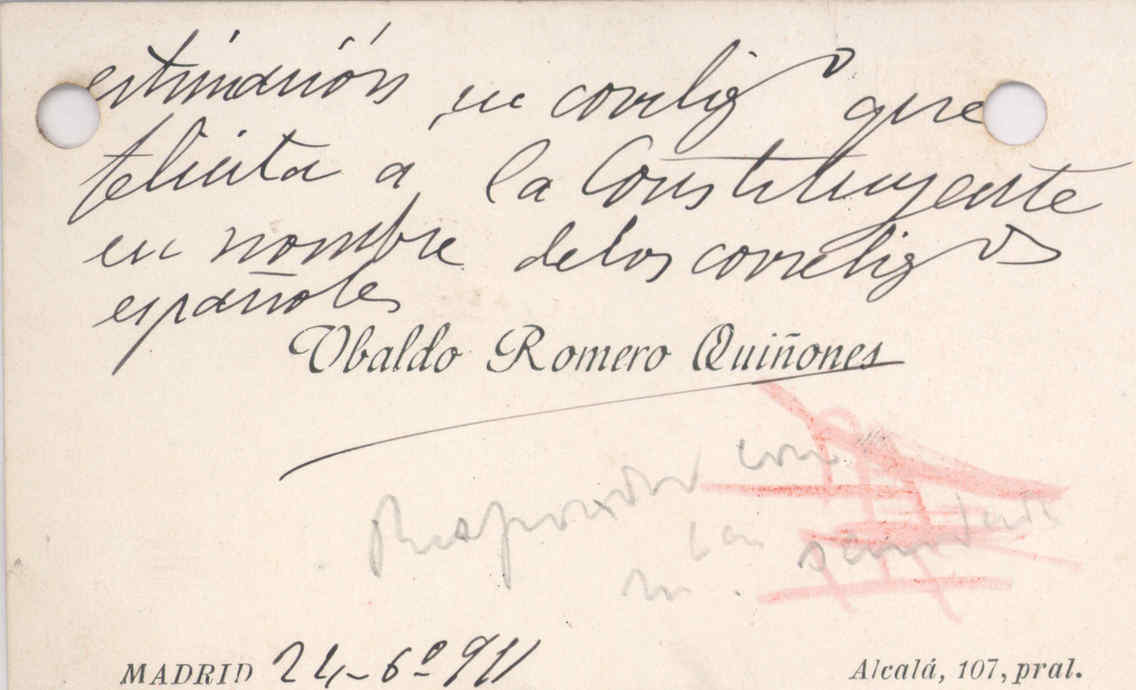 estimación su correlig.º que
felicita a la Constituyente
en nombre de los correligos
españoles
Ubaldo Romero Quiñones
Responder con
MADRID 24-6º 911
Alcalá, 107, pral.